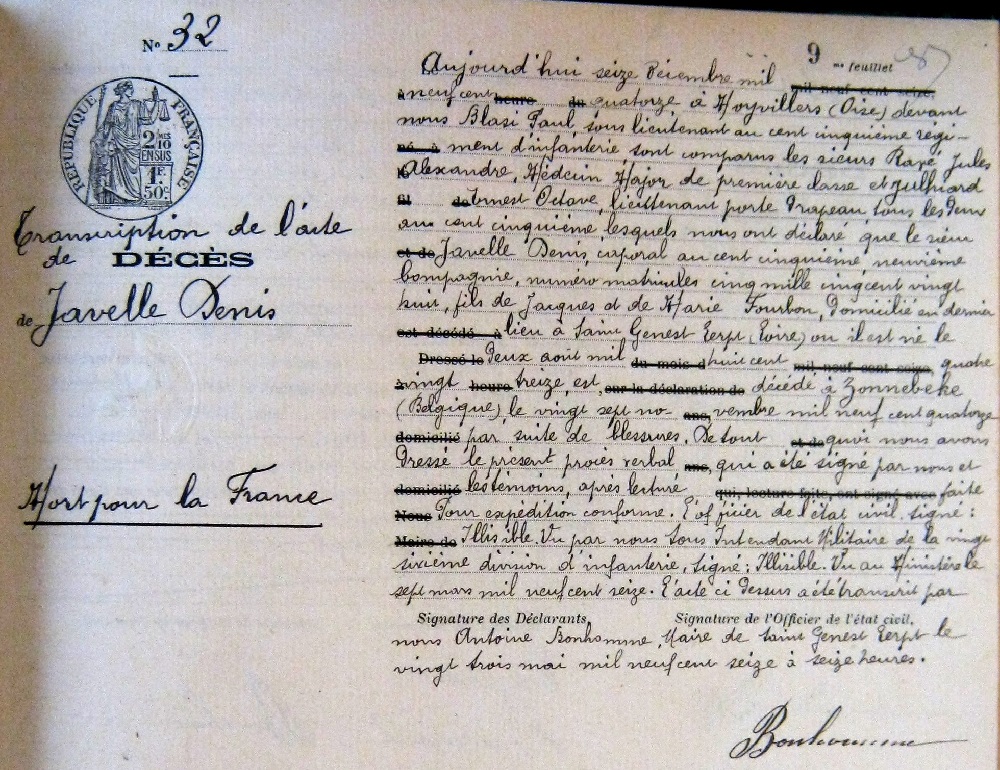 N° 32
RÉPUBLIQUE FRANÇAISE
2 MES
10
EN SUS
1F.
50c.
Transcription de l'acte
de DÉCÈS
de Javelle Denis
Mort pour la France
9 me feuillet 87
Aujourd'hui seize Décembre mil mil neuf cent seize,
à neuf cent heure du quatorze à Noyvillers (Oise) devant
nous Blasi Paul, sous lieutenant au cent cinquième régi-
né à ment d'infanterie sont comparus les sieurs Rapé, Jules
Alexandre, Médecin Major de première classe et Julhiard
fil de Ernest Octave, lieuttenant porte Drapeau tous les Deux
au cent cinquième, lesquels nous ont déclaré que le sieur
et de Javelle Denis, caporal au cent cinquième neuvième
Compagnie, numéro matricules cinq mille cinq cent vingt
huit, fils de Jacques et de Marie Fourbon, Domicilié en dernier
est décédé à lieu à Saint Genest Lerpt (Loire) ou il est né le
Dressé le Deux août mil du mois d huit cent mil neuf cent seize, quatre
à vingt heure treize, est, sur la déclaration de décédé à Zonnebeke
(Belgique), le vingt sept no- ans, vembre mil neuf cent quatorze
domicilié par suite de blessures. De tout et de quoi nous avons
Dressé le présent procès verbal ans, qui a été signé par nous et
domicilié les temoins, après lecture qui, lecture faite, ont signé avec faite
Nous Pour expédition conforme. L'officier de l'état civil. signé:
Maire de Illisible. Vu par nous Sous Intendant Militaire de la vingt
sixième division d'infanterie, signé: Illisible. Vu au Ministère le
sept mars mil neuf cent seize. L'acte ci Dessus a été transcrit par
Signature des Déclarants, Signature de l'Officier de l'état civil,
nous Antoine Bonhomme, Maire de Saint Genest Lerpt le
vingt trois mai mil neuf cent seize à seize heures.
Bonhomme